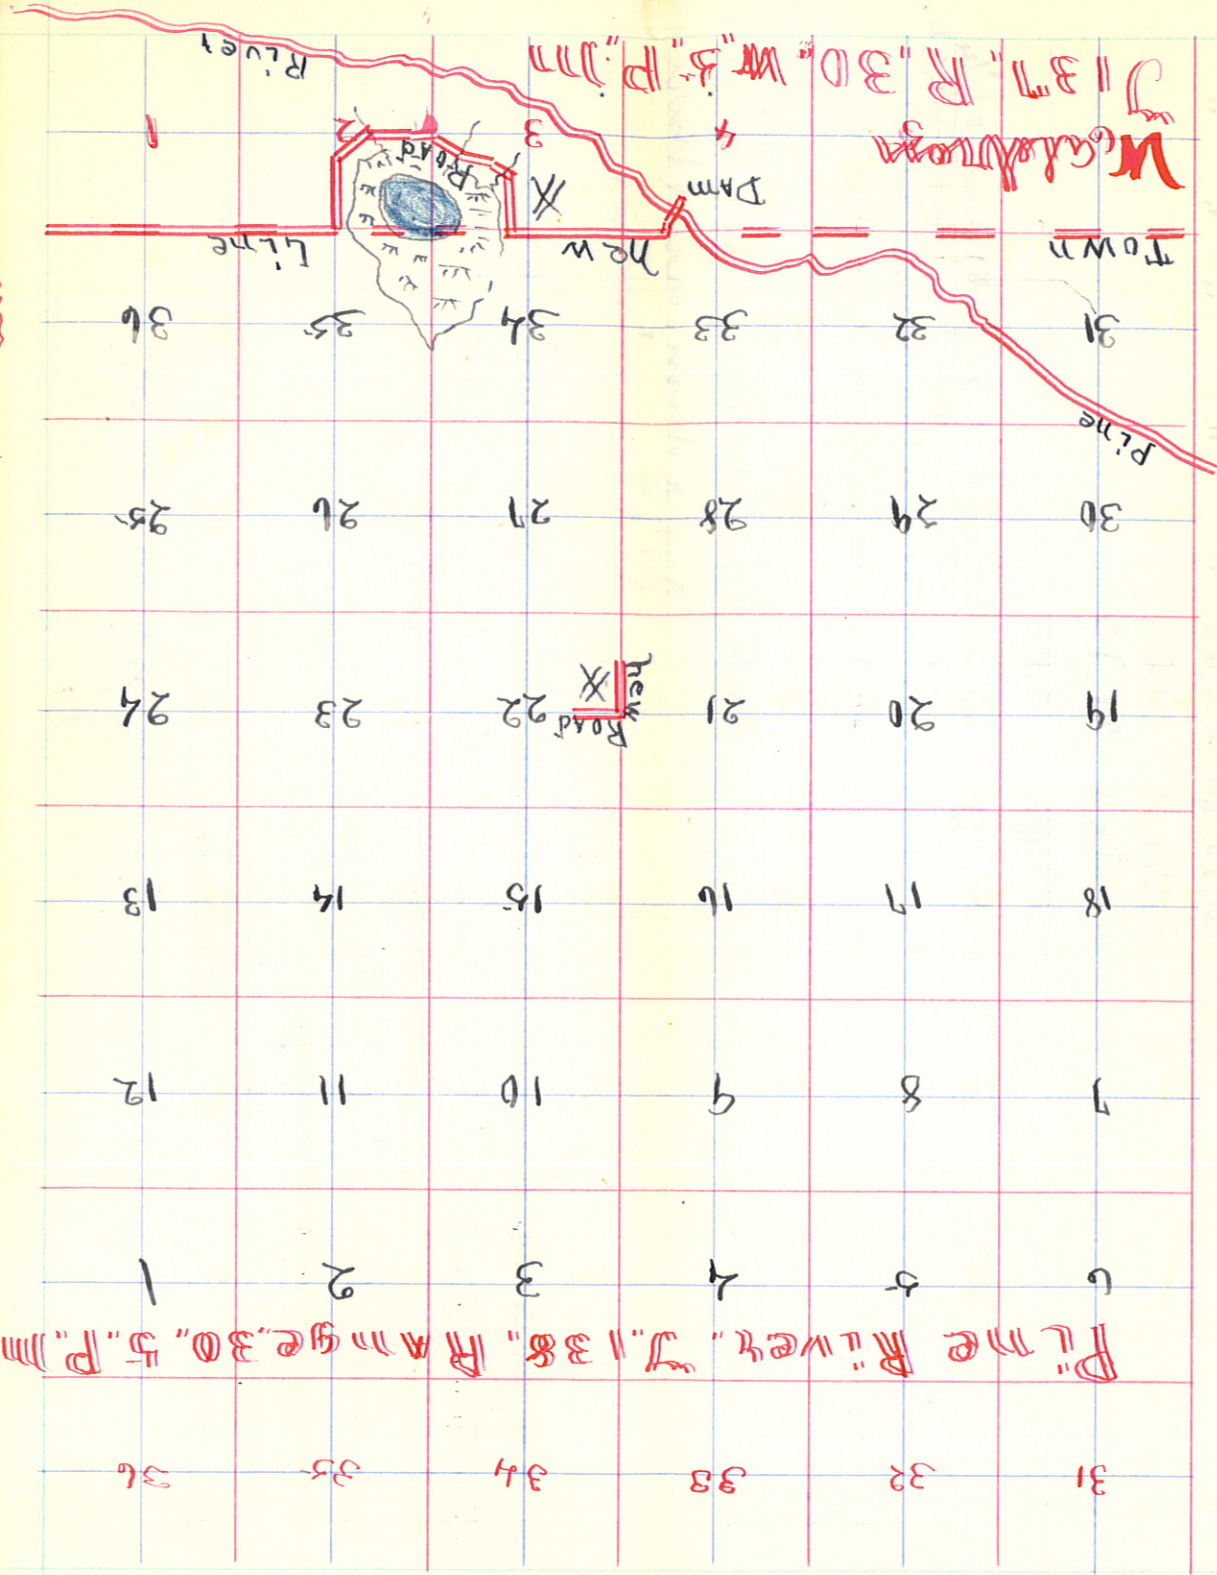 31 32 33 34 35 36
Pine River,, T,,138,, Range,,30,, 5,, P,,M
6 5 4 3 2 1
7 8 9 10 11 12
18 17 16 15 14 13
Road
19 20 21 New X 22 23 24
30 29 28 27 26 25
Pine
31 32 33 34 35 36
Town New Line
Dam X
Road
4 3 2 1
T137,, R,,30,, W,,5,, P,,M
River